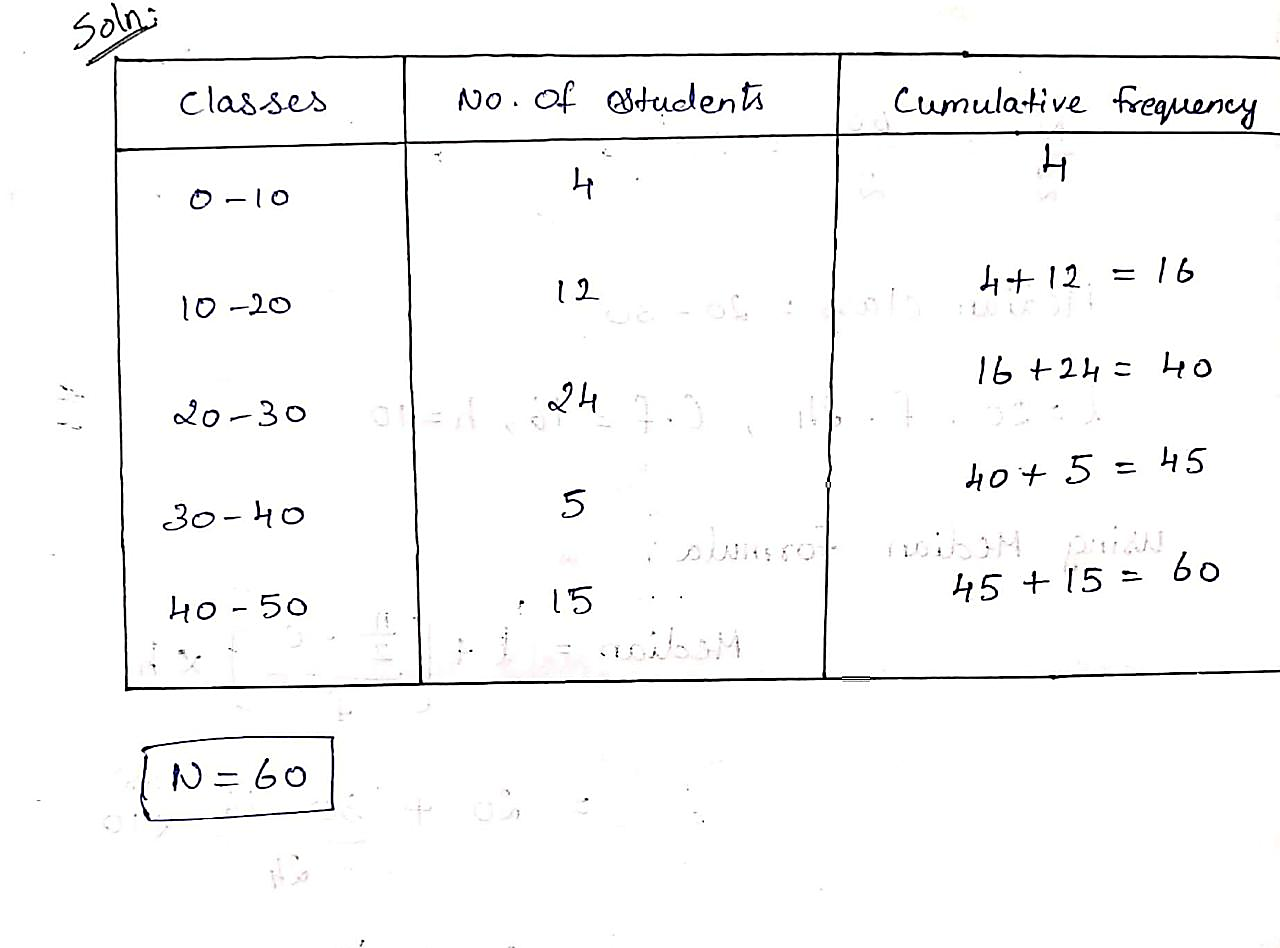 Soln:
Classes No. Of Students Cumulative frequency
0-10 4 4
10-20 12 4+12 = 16
20-30 24 16+24 = 40
30-40 5 40+5 = 45
40-50 15 45+15 = 60
N=60